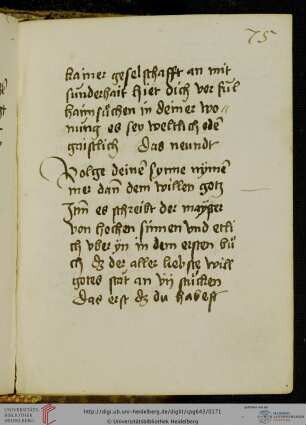 75
kainer geselschafft an mit
sunderhait hiet dich vor fúl
haimsůchen in deiner wo
nŭng es sey weltlich oder
gaistlich Das neundt
Volge deinem synne nymer
mer dañ dem willen gotz
Itm̃ es schreibt der mayster
von hochen sinnen vnd etli
ch vber yn in dem ersten bů
ch dz der aller liebste will
gotes stät an vij stucken
Das erst dz du habest
UNIVERSITÄTS-
BIBLIOTHEK
HEIDELBERG
http://digi.ub.uni-heidelberg.de/diglit/cpg643/0171
© Universitätsbibliothek Heidelberg